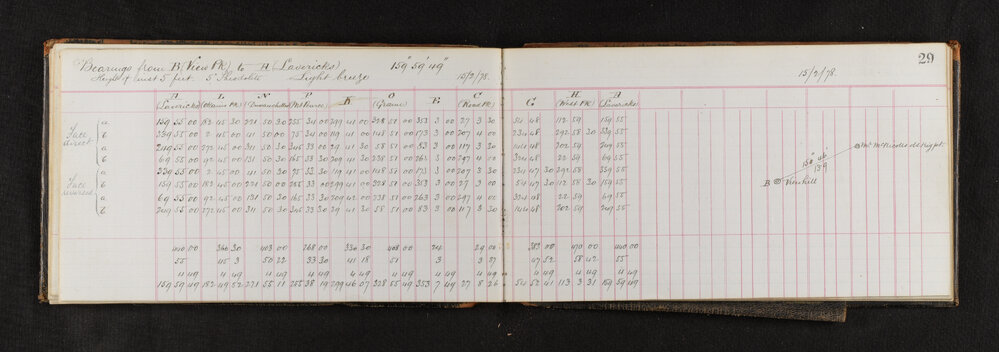 Bearings from B (View Pk) to A (Lavericks) 159° 59' 49"
Height of inst 5 feet 5" Theodolite Light breeze 15/2/78.
A L N P K O E C
(Lavericks) (Grant)
Face direct
a 159 55 00 182 45 30 221 50 30 255 34 00 299 41 00 328 51 00 353 3 00 27 3 30
b 339 55 00 2 45 60 41 50 00 75 34 00 119 41 00 148 51 00 173 3 00 207 4 00
a 249 55 00 272 45 00 311 50 30 345 33 00 29 41 30 58 51 00 83 3 00 117 3 30
b 69 55 00 92 45 00 131 50 30 165 33 30 209 41 30 238 51 00 263 3 00 297 4 00
Face reversed
a 339 55 00 2 45 00 41 50 30 75 33 30 119 41 00 148 51 00 173 3 00 207 3 30
b 159 55 00 182 45 00 221 50 00 255 33 00 299 41 00 328 51 00 353 3 00 27 3 00
a 69 55 00 92 45 00 131 50 30 165 33 30 209 41 00 238 51 00 263 3 00 297 4 00
b 249 55 00 272 45 00 311 50 30 345 33 30 29 41 30 58 51 00 83 3 00 117 3 30
440 00 403 00 268 00 330 30 408 00 24 29 00
55 45 3 50 22 33 30 41 18 51 3 3 37
4 49 4 49 4 49 4 49 4 49 4 49 4 49 4 49
159 59 49 182 49 52 221 55 11 255 38 19 299 46 07 328 55 49 353 7 49 27 8 26
29
15/2/78.
G H A
(West Pk) (Lavericks)
54 48 112 59 159 55
234 48 292 58 30 339 55
144 48 202 59 249 55
324 48 22 59 69 55
234 47 30 292 58 339 55
54 47 30 112 58 30 159 55
324 48 22 59 69 55
144 48 202 59 249 55
383 00 470 00 440 00
47 52 58 42 55
4 49 4 49 4 49
54 52 41 113 3 31 159 59 49
150° 46'
139
B Viewhill